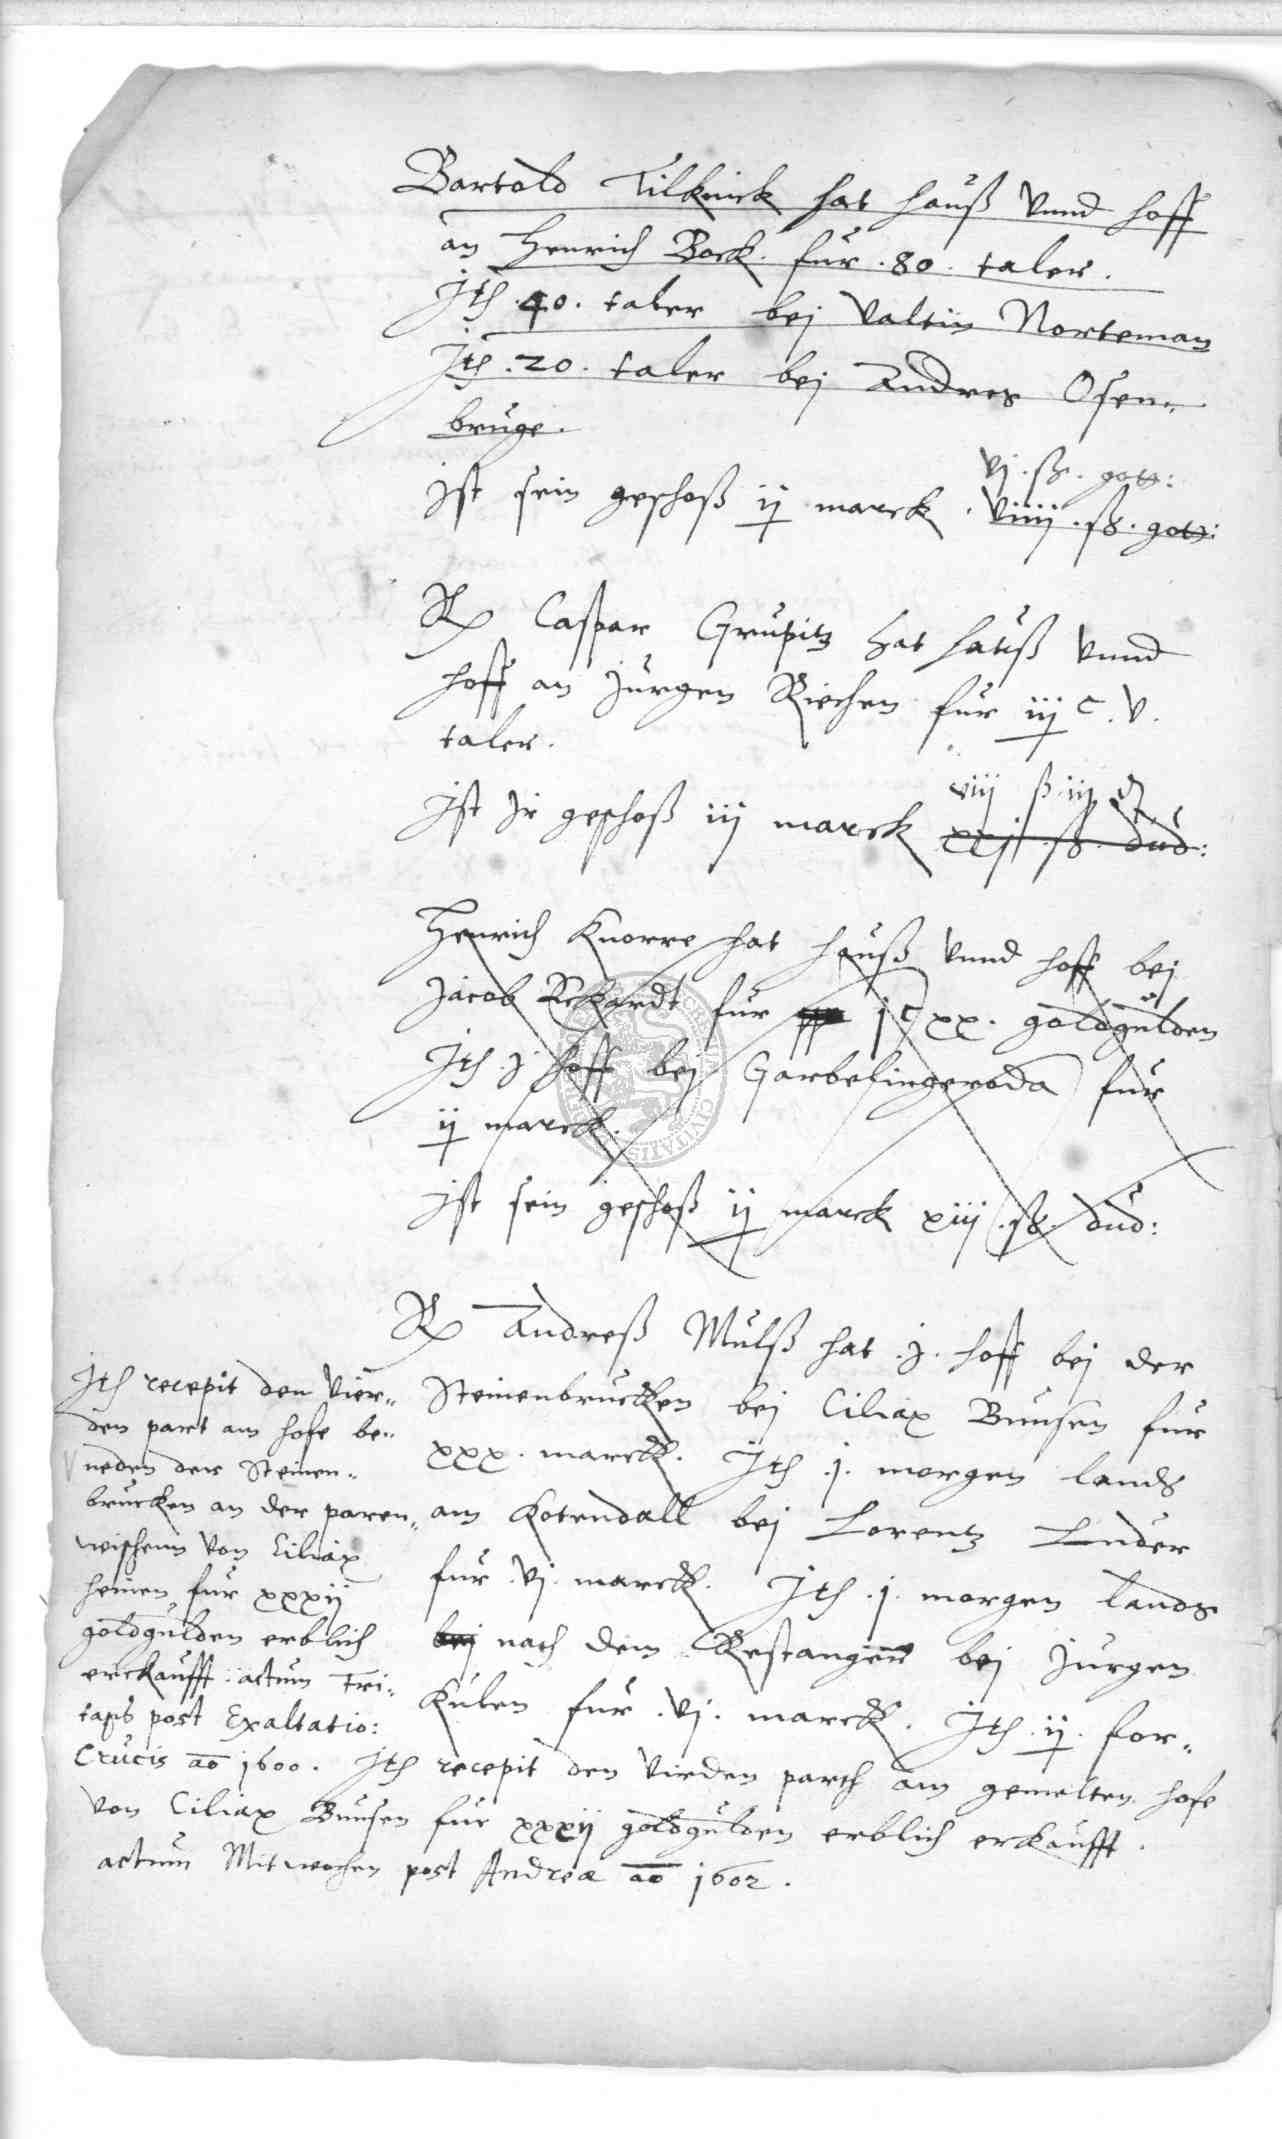 Bartold Tilknick hat hauß vnnd hoff
an Henrich Bock. fur .80. taler.
Jth .40. taler bej Valtin Norteman
Jth .20. taler bej Andres Osen-
bruge.
vj .ß. gott:
Jst sein geschoß ij marck . viiij .ß. gott:
Caspar Grupitz hat hauß vnnd
hoff an Jurgen Riechen fur iij C. v.
taler.
viij ß iij
Jst Jr geschoß iij marck xxj .ß. dud:
Henrich Knorre hat hauß vnnd hoff bej
Jacob Rekardt fur jC xx. goldgulden
Jth .j hoff bej Garbesingeroda fur
ij marck.
Jst sein geschoß ij marck xiij .ß. dud:
Andreß Mulß hat .j. hoff bej der
Steinenbrucken bej Ciliax Bunsen fur
xxx. marck. Jth .j. morgen lands
am Kotendall bej Lorentz Luder
fur .vj. marck. Jth .j. morgen lands
bej nach dem Restangen bej Jurgen
Kulen fur .vj. marck. Jth .ij. for-
Jth recepit den vier-
den part am hofe be-
neden der Steinen-
brucken an der paren-
wischenn von Ciliax
heinen fur xxxij
goldgulden erblich
erckaufft: actum Tri-
tags post Exaltatio:
Crucis ao 1600. Jth recepit den vierden parth am gemelten hofe
von Ciliax Bunsen fur xxxij goldgulden erblich erckaufft.
actum Mitwochen post Andreæ ao 1602.
CIVITATIS